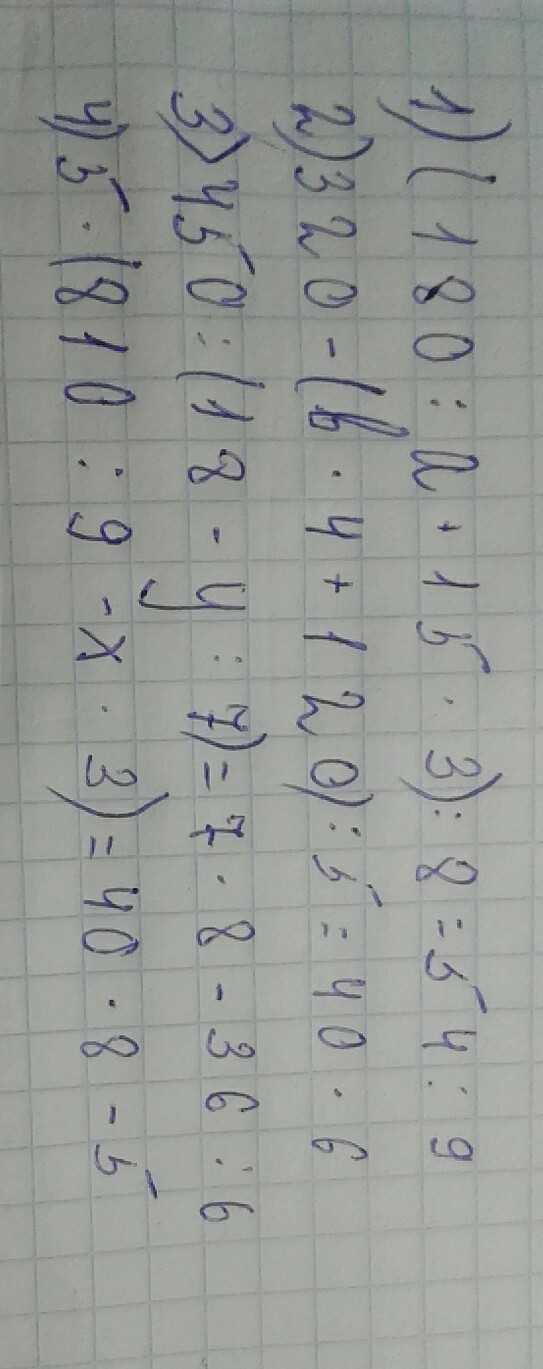 1) (180 : a + 15 · 3) : 8 = 54 : 9
2) 320 - (b · 4 + 120) : 5 = 40 · 6
3) 450 : (18 - y : 7) = 7 · 8 - 36 : 6
4) 5 · (810 : 9 - x · 3) = 40 · 8 - 5